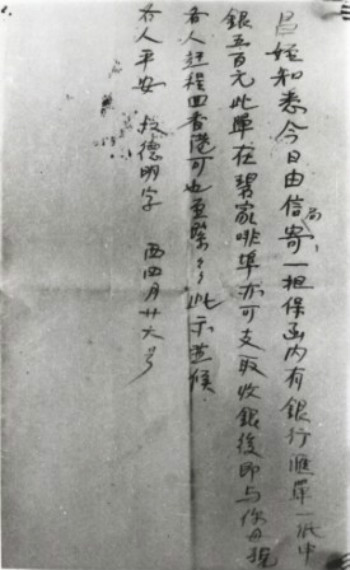 昌姪知悉今日由信局寄一担保函内有銀行匯單一紙中
銀五百元此單在碧家啡埠亦可支取收銀後即与你母親
各人赶程回香港可也至緊々々此示並候
各人平安 叔德明字 西四月廿六号